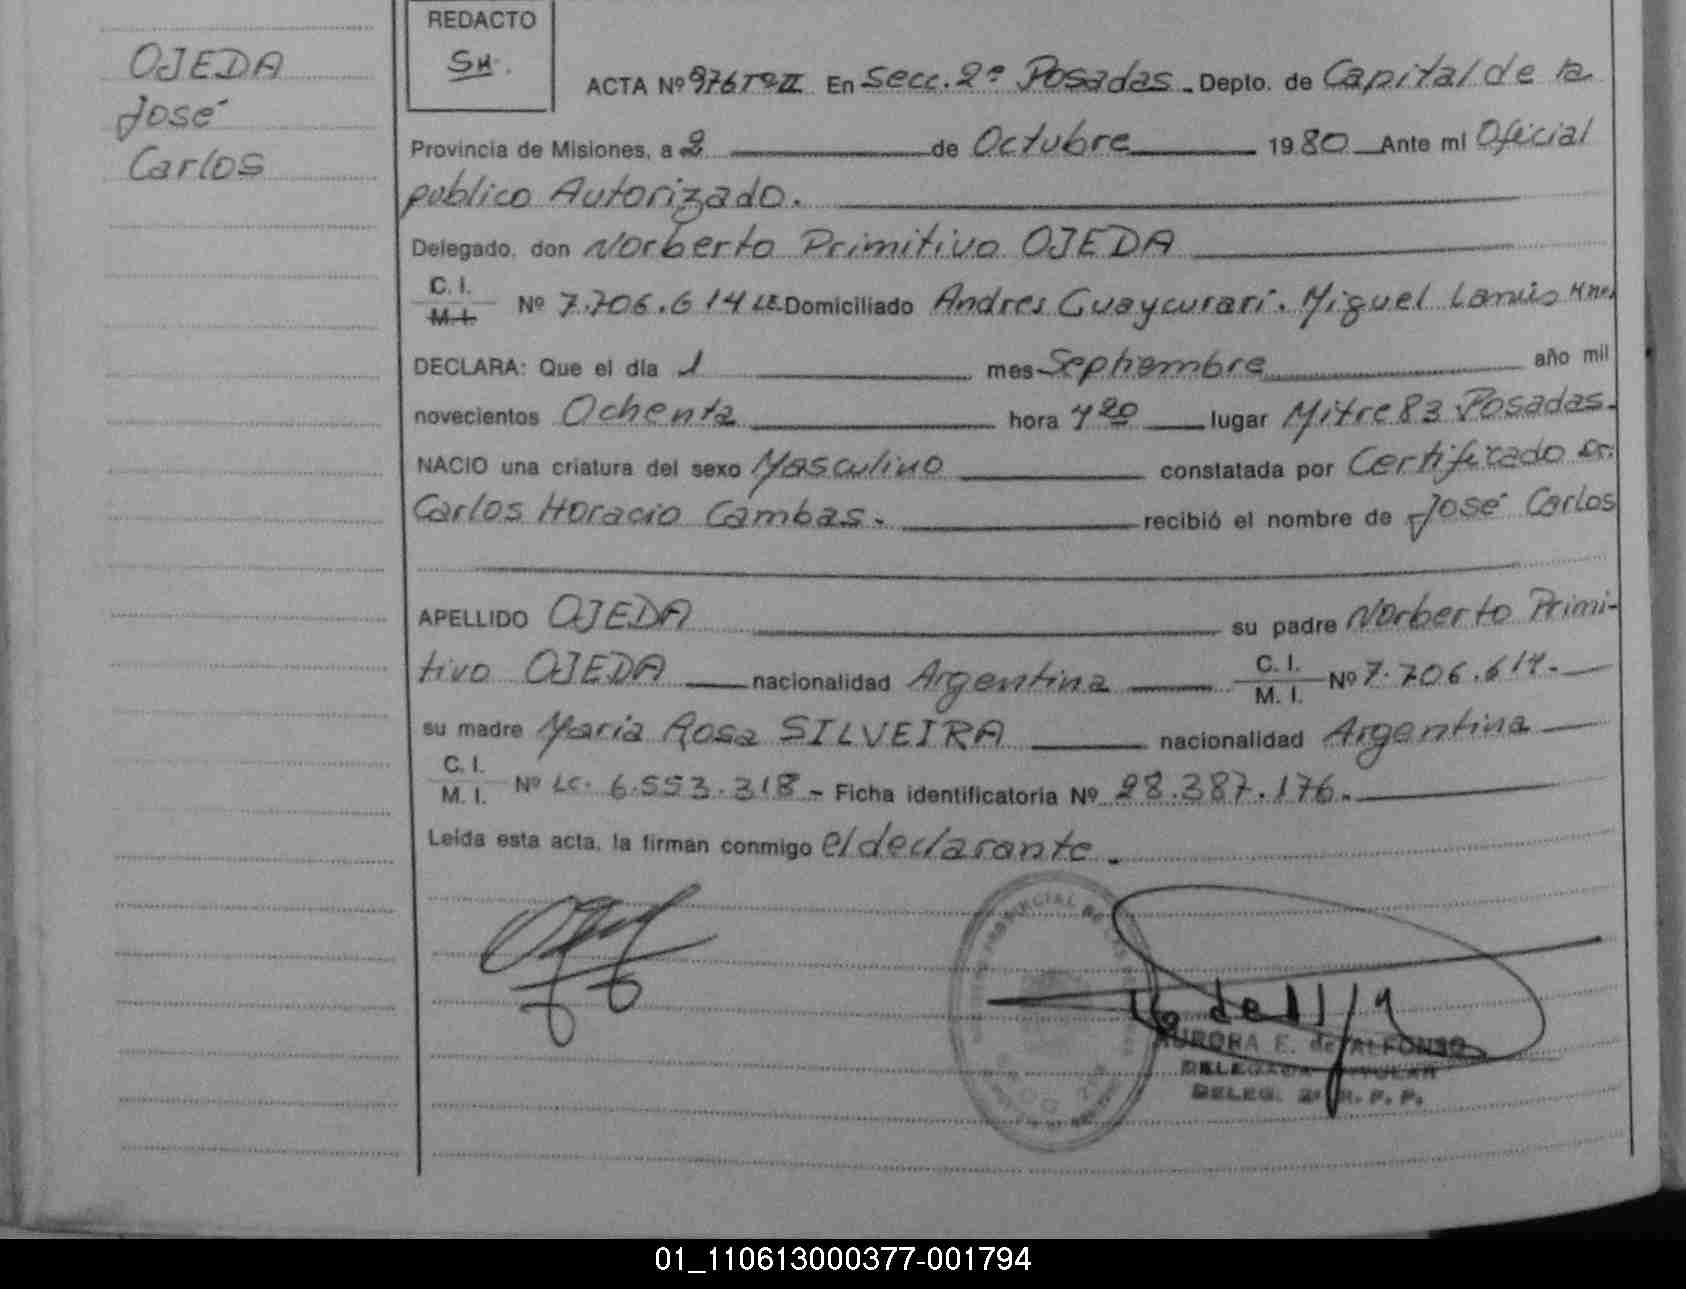 OJEDA
José
Carlos
REDACTO
SH.
ACTA Nº 976 Tº II En Secc. 2º Posadas. Depto. de Capital de la
Provincia de Misiones, a 2 de Octubre 1980 Ante mí Oficial
público Autorizado.
Delegado, don Norberto Primitivo OJEDA
C. I.
M. I. Nº 7.706.614 LE. Domiciliado Andres Guaycurarí. Miguel Lanuis
DECLARA: Que el día 1 mes Septiembre año mil
novecientos Ochenta hora 4 20 lugar Mitre 83 Posadas.
NACIO una criatura del sexo Masculino constatada por Certificado Dr.
Carlos Horacio Cambas. recibió el nombre de José Carlos
APELLIDO OJEDA su padre Norberto Primi-
tivo OJEDA nacionalidad Argentina C. I.
M. I. Nº 7.706.614.
su madre María Rosa SILVEIRA nacionalidad Argentina
C. I.
M. I. Nº LC. 6.553.318 - Ficha identificatoria Nº 28.387.176.
Leída esta acta, la firman conmigo el declarante.
AURORA E. de ALFONSO
DELEGADA TITULAR
DELEG. 2ª R. P. P.
01_110613000377-001794